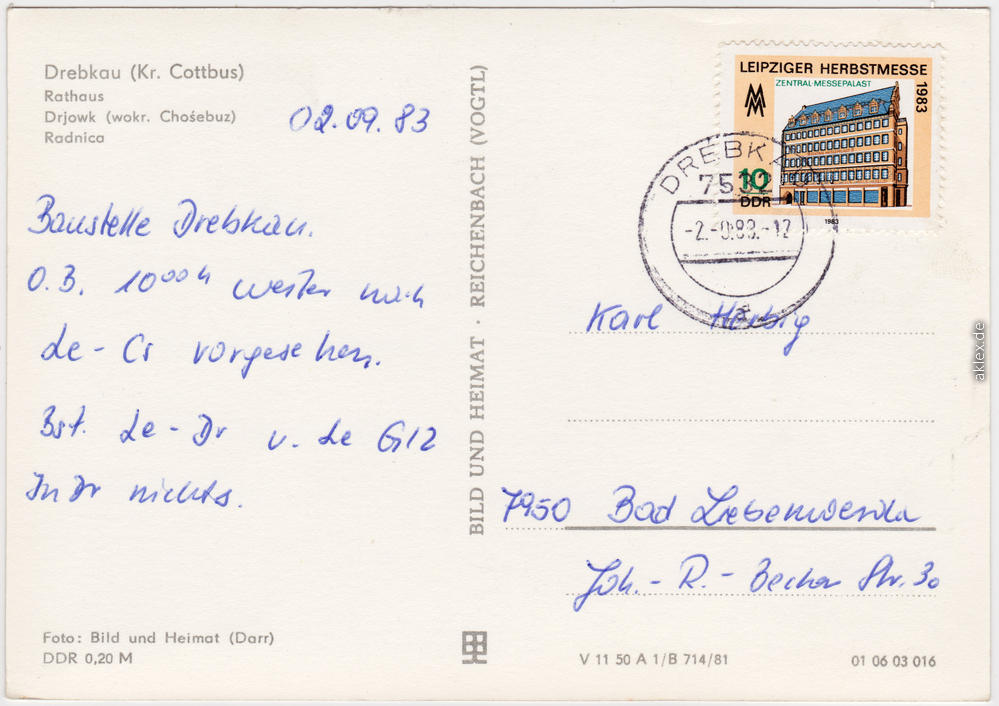 Drebkau (Kr. Cottbus)
Rathaus
Drjowk (wokr. Chośebuz)
Radnica
02.09.83
Baustelle Drebkau.
O.B. 10⁰⁰h weiter nach
Le-Cs vorgesehen.
Bst. Le-Dr v. Le G12
In Dr nichts.
Foto: Bild und Heimat (Darr)
DDR 0,20 M
BILD UND HEIMAT · REICHENBACH (VOGTL)
LEIPZIGER HERBSTMESSE
1983
ZENTRAL-MESSEPALAST
10
DDR
1983
DREBKA
7532
-2.-9.83.-12
a
Karl Herbig
7950 Bad Liebenwerda
Joh.-R.-Becher Str. 30
V 11 50 A 1/B 714/81
01 06 03 016
aklex.de